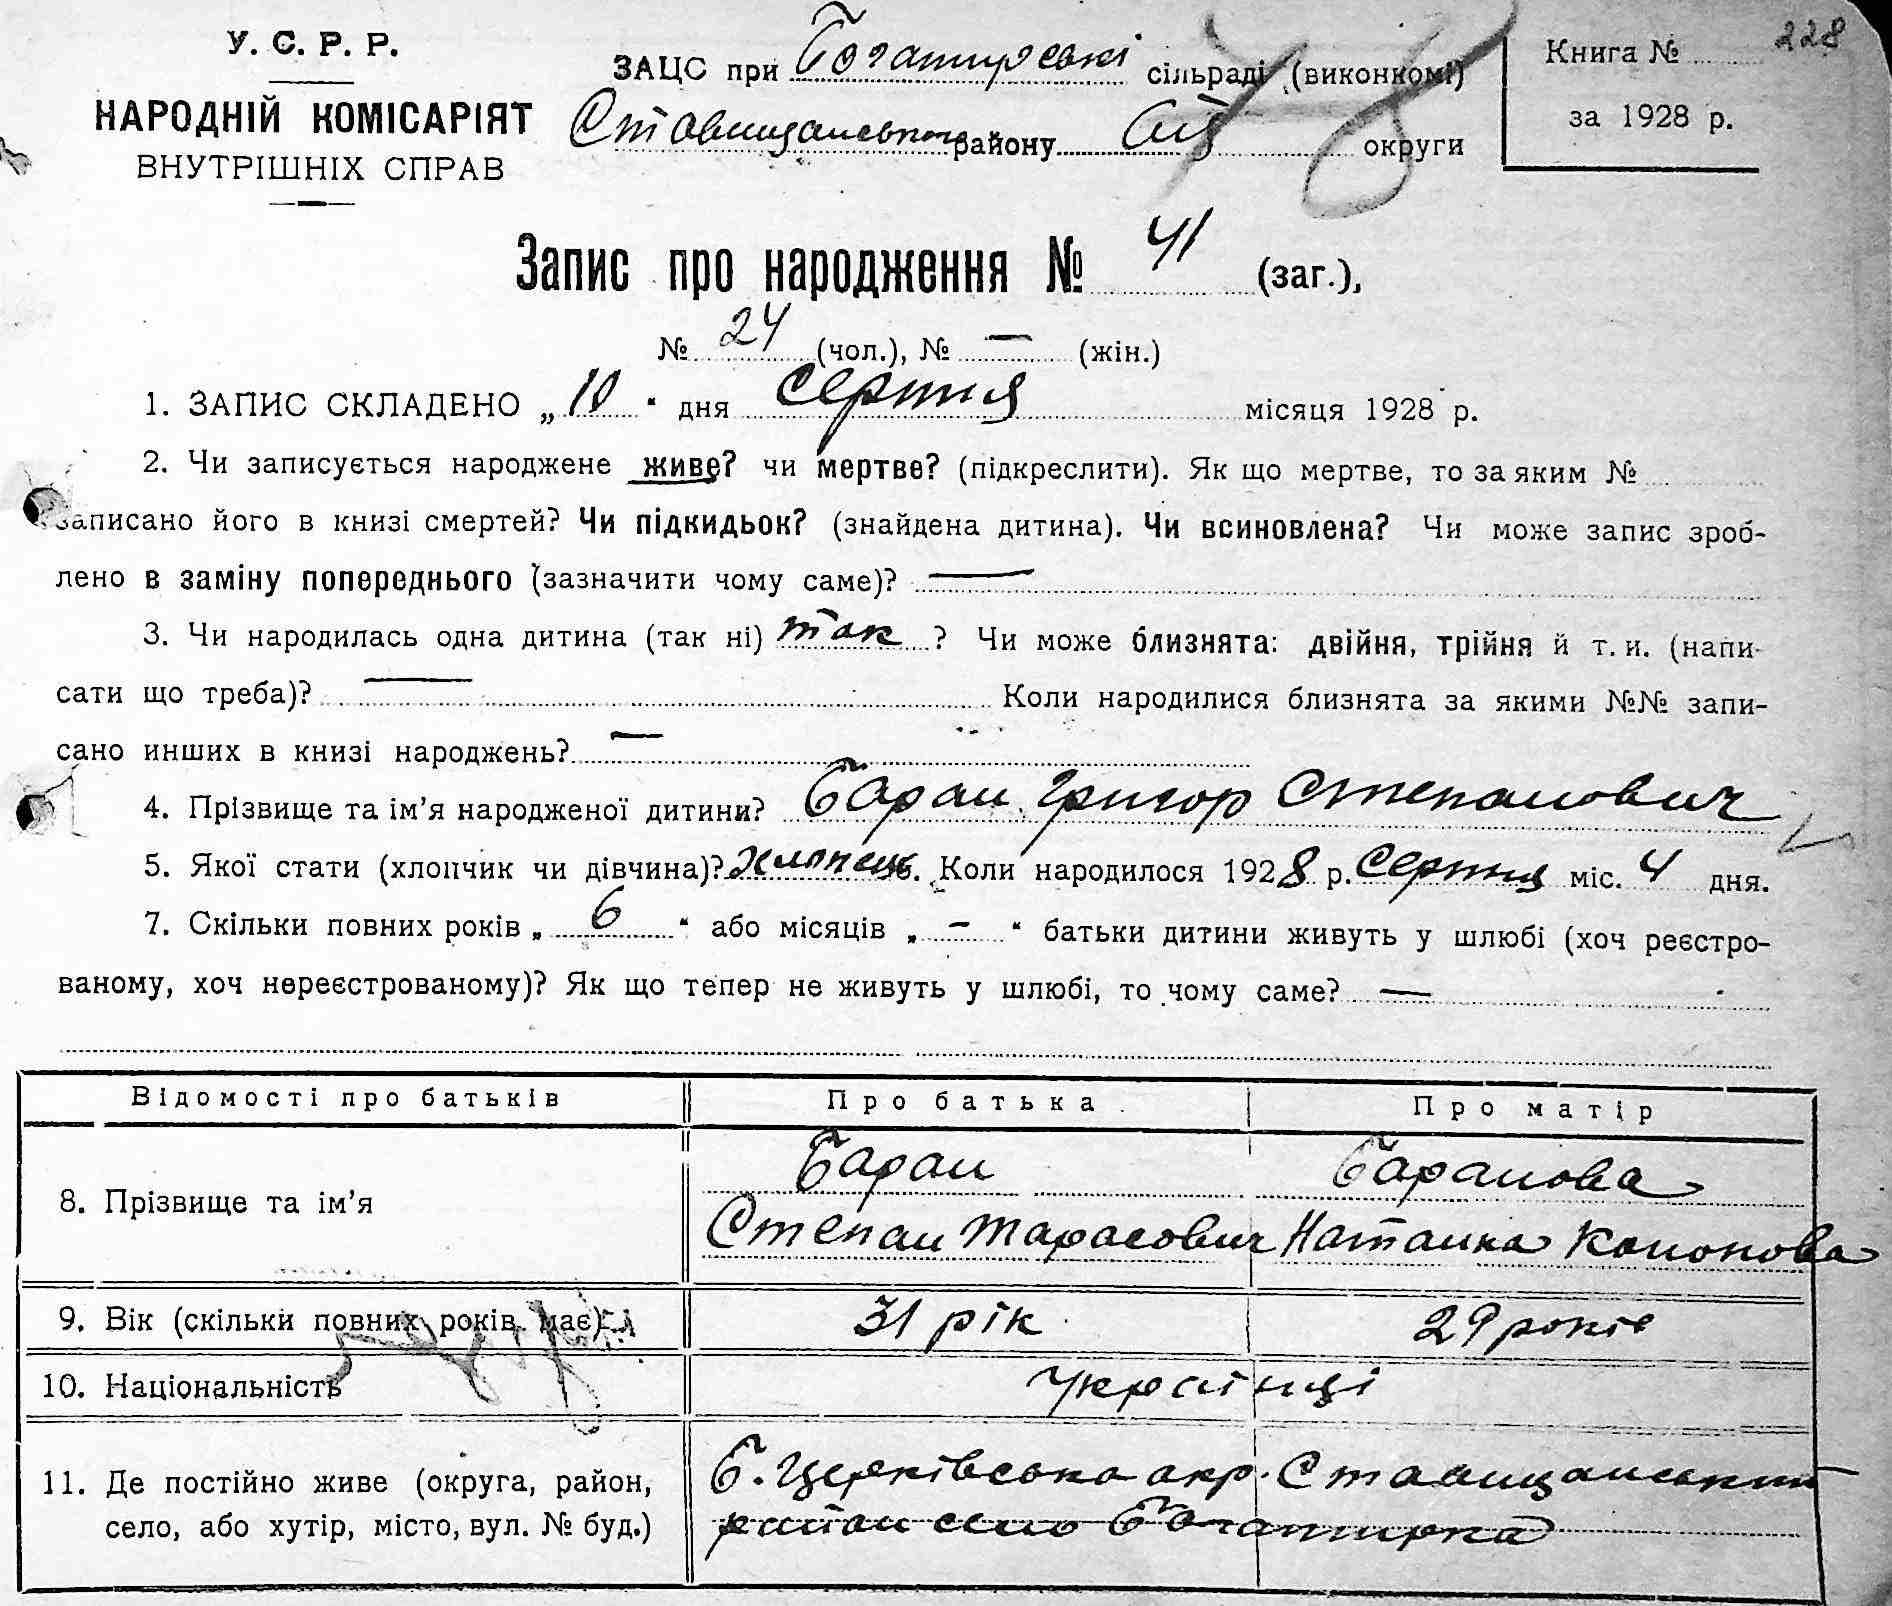 У. С. Р. Р.
НАРОДНІЙ КОМІСАРІЯТ
ВНУТРІШНІХ СПРАВ
ЗАЦС при Богатирські сільраді (виконкомі)
Ставищанського району округи
Книга №
228
за 1928 р.
Запис про народження № 41 (заг.),
№ 24 (чол.), № — (жін.)
1. ЗАПИС СКЛАДЕНО „10“ дня серпня місяця 1928 р.
2. Чи записується народжене живе? чи мертве? (підкреслити). Як що мертве, то за яким №
записано його в книзі смертей? Чи підкидьок? (знайдена дитина). Чи всиновлена? Чи може запис зроб-
лено в заміну попереднього (зазначити чому саме)? —
3. Чи народилась одна дитина (так ні) так? Чи може близнята: двійня, трійня й т. и. (напи-
сати що треба)? — Коли народилися близнята за якими №№ запи-
сано инших в книзі народжень? —
4. Прізвище та ім’я народженої дитини? Баран Григор Степанович
5. Якої стати (хлопчик чи дівчина)? хлопець. Коли народилося 1928 р. Серпня міс. 4 дня.
7. Скільки повних років „6“ або місяців „—“ батьки дитини живуть у шлюбі (хоч реєстро-
ваному, хоч нереєстрованому)? Як що тепер не живуть у шлюбі, то чому саме? —
Відомості про батьків Про батька Про матір
8. Прізвище та ім’я
Баран Баранова
Степан Тарасович Наталка Кононова
9. Вік (скільки повних років має) 31 рік 29 років
10. Національність українці
11. Де постійно живе (округа, район,
село, або хутір, місто, вул. № буд.)
Б. Церківська окр. Ставищанський
район село Богатирка